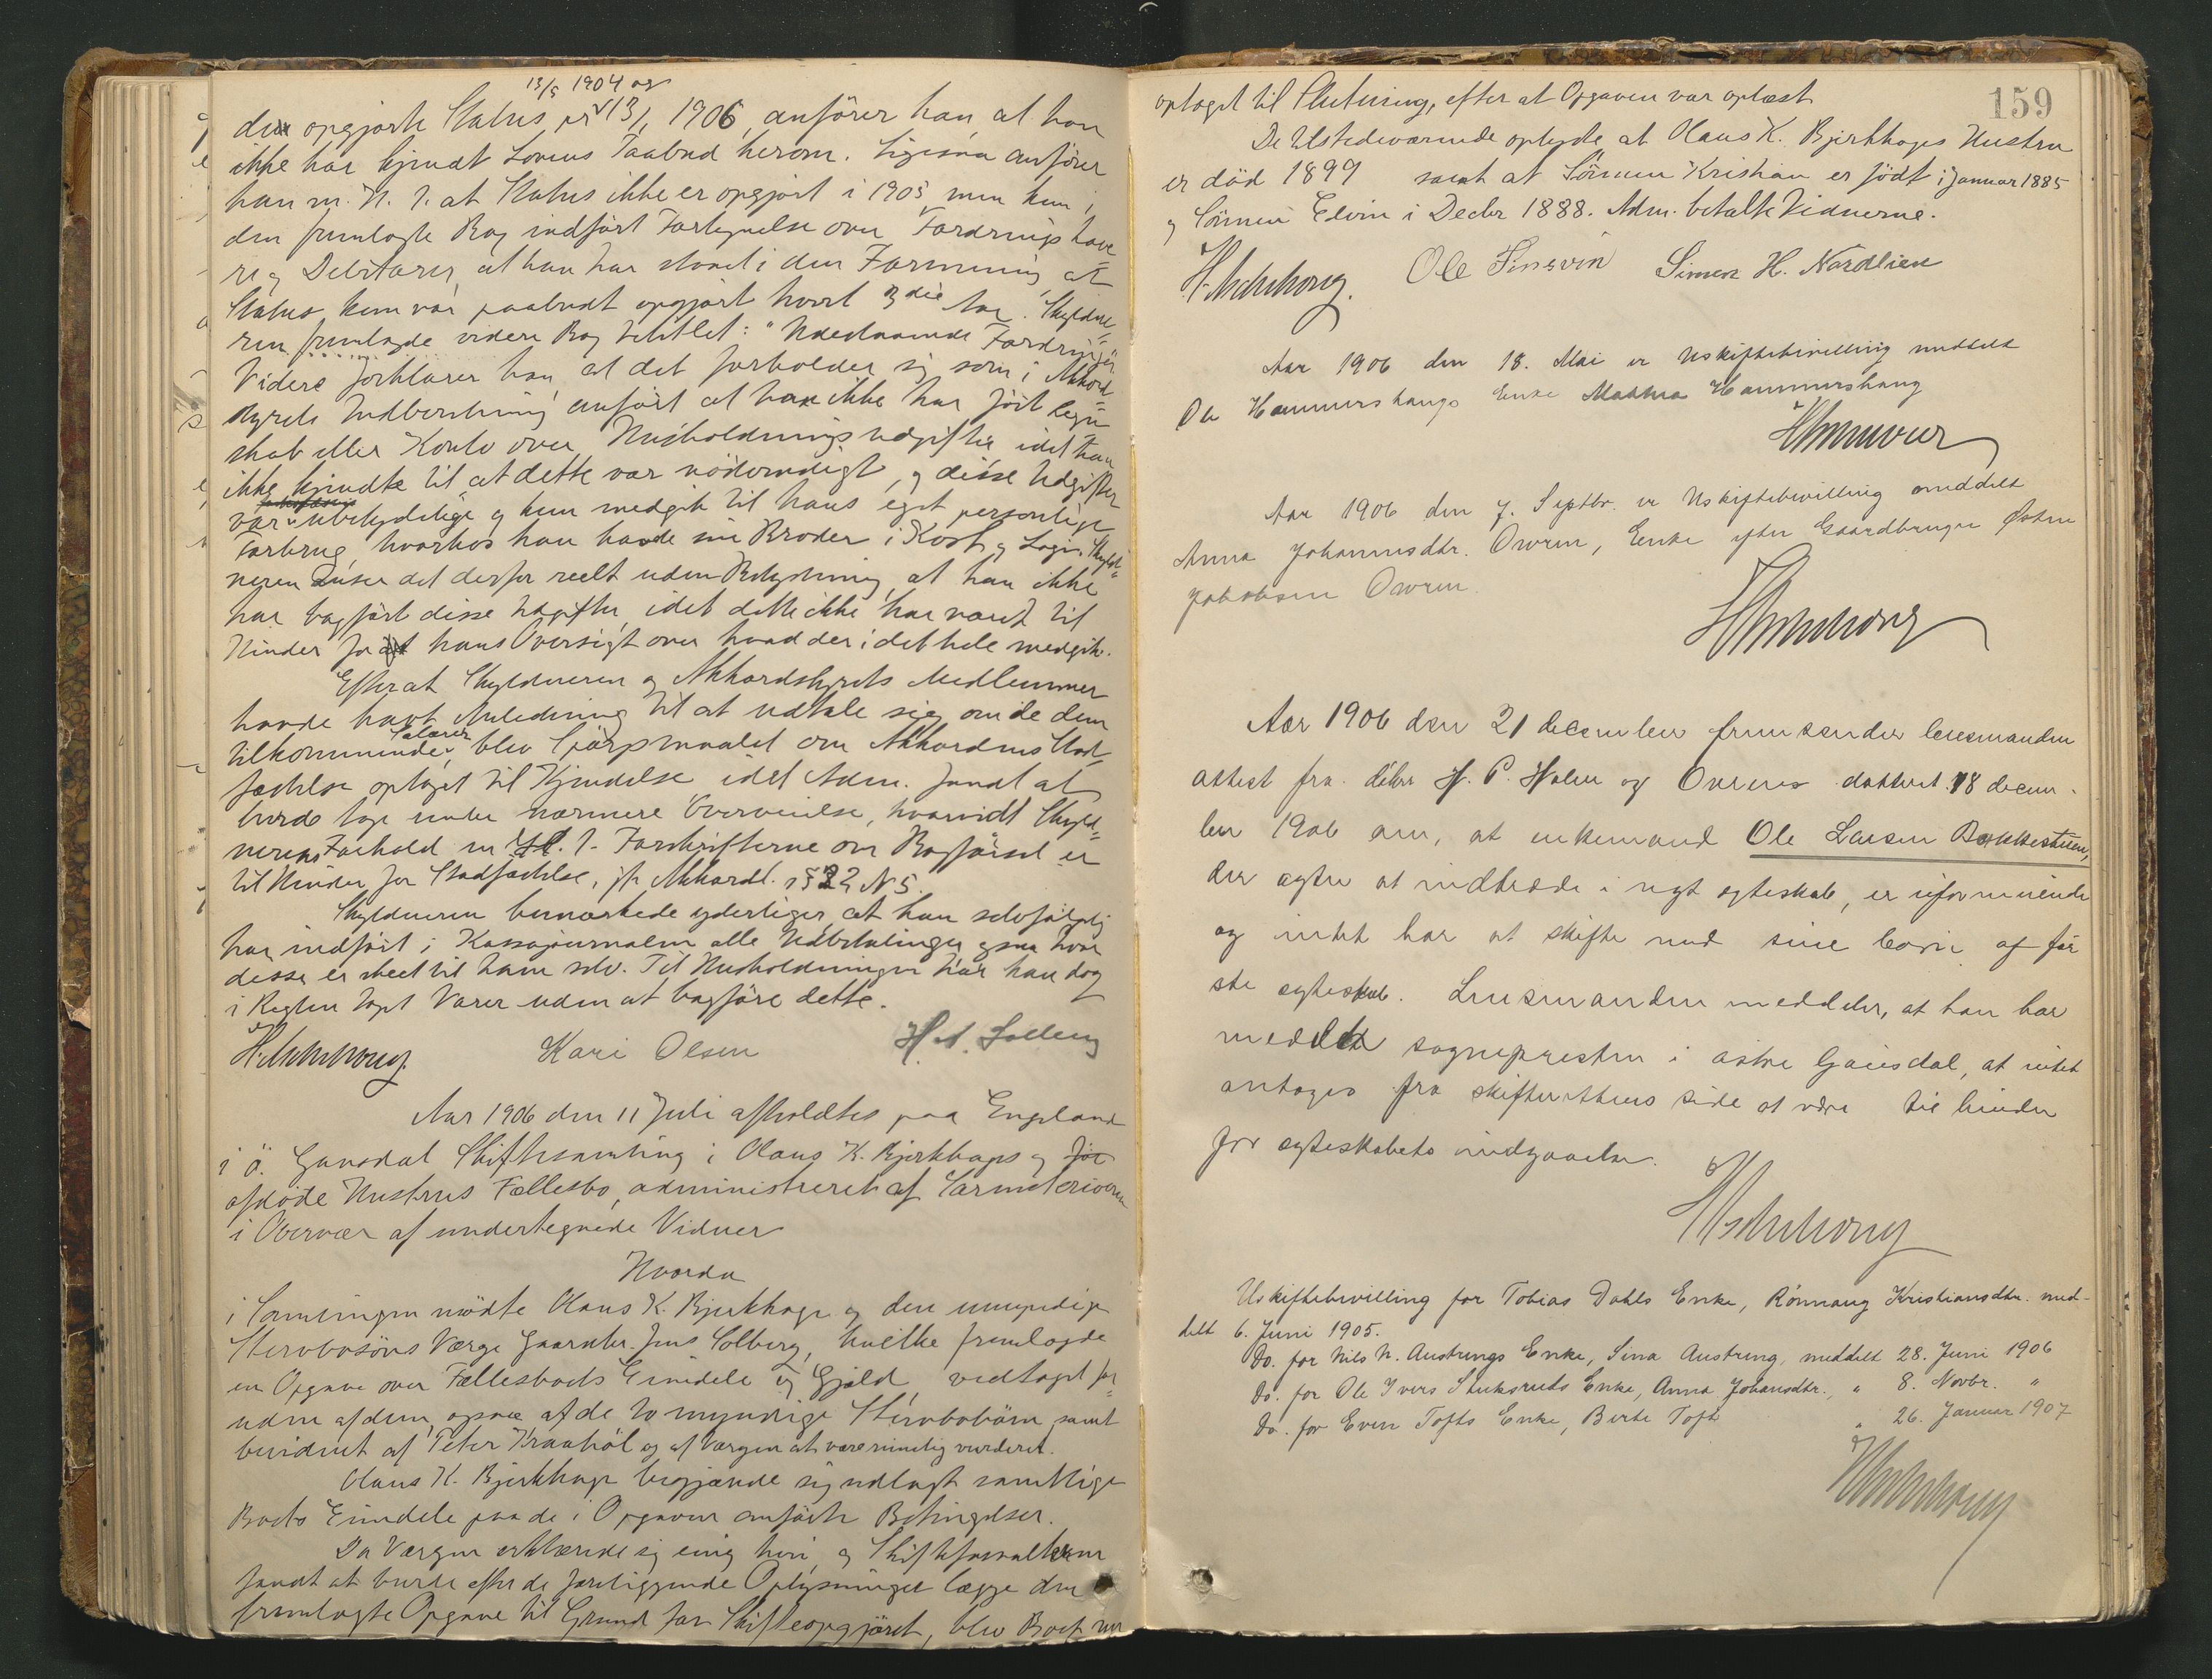 13/5 1904 og
den opgjorte Status pr 13/1 1906, anfører han, at han
ikke har kjendt Lovens Paabud herom. Ligesaa anfører
han m. H. t. at Status ikke er opgjort i 1905 men kun i
den fremlagte Bog indført Fortegnelse over Fordringshave=
re og Debitorer, at han har staaet i den Formening, at
Status kun var paabudt opgjort hvert 2die Aar. Skyldne=
ren fremlagde videre Bog betitlet: "Udestaaende Fordringer"
Videre forklarer han, at det forholder sig som i Akkord=
styrets Indberetning anført at han ikke har ført Regn=
skab eller Konto over Husholdningsudgifter idet han
ikke kjendte til at dette var nødvendigt, og disse Udgifter
var ubetydelige og kun medgik til hans eget personlige
Forbrug hvorhos han havde sin Broder i Kost og Logis. Skyld=
neren det derfor reelt uden Betydning, at han ikke
har bogført disse Udgifter, idet dette ikke har været til
Hinder for hans Oversigt over hvad der i det hele medgik.
Efterat Skyldneren og Akkordstyrets Medlemmer
havde havt Anledning til at udtale sig om de dem
tilkommende Salærer, blev Spørgsmaalet om Akkordens Stad=
fæstelse optaget til Kjendelse, idet Adm. fandt at
burde tage under nærmere Overveielse, hvorvidt Skyld=
nerens Forhold m. H. t. Forskrifterne om Bogførsel er
til Hinder for Stadfæstelse, jfr Akkordl. § 32 N 5.
Skyldneren bemærkede yderligere, at han selvfølgelig
har indført i Kassajournalen alle Udbetalinger ogsaa hvor
disse er skeet til ham selv. Til Husholdningen har han dog
i Reglen tagt Varer uden at bogføre dette.
Kari Olsen H. A. Solberg
Aar 1906 den 11 Juli afholdtes paa Engeland
i Ö. Gausdal Skiftesamling i Olaus K. Bjerkhages og
afdøde Hustrus Fællesbo, administreret af Sorenskriveren
i Overvær af undertegnede Vidner
Hvorda
i Samlingen mødte Olaus K. Bjerkhage og den umyndige
Stervbosøns Værge Gaardbr. Jens Solberg, hvilke fremlagde
en Opgave over Fællesboets Eiendele og Gjæld, vedtaget for=
uden af dem, ogsaa af de to myndige Stervbobørn samt
bevidnet af Peter Kraabøl og af Værgen at være rimelig vurderet.
Olaus K. Bjerkhage begjærede sig udlagt samtlige
Boets Eiendele paa de i Opgaven anførte Betingelser.
Da Værgen erklærede sig enig heri, og Skifteforvalteren
fandt at burde efter de foreliggende Oplysninger lægge den
fremlagte Opgave til Grund for Skifteopgjøret, blev Boet nu
159
optaget til Slutning, efter at Opgaven var oplæst
De tilstedeværende oplyste at Olaus K. Bjerkhages Hustru
er død 1899 samt at Sönnen Kristian er født i Januar 1885
og Sönnen Elvin i Decbr 1888. Adm. betalte Vidnerne.
Ole Simen H. Nordlien
Aar 1906 den 18. Mai er Uskiftebevilling meddelt
Ole Hammershaugs Enke Mathea Hammershaug
Aar 1906 den 7. Septbr. er Uskiftebevilling meddelt
Anna Johannesdtr. Owren, Enke efter Gaardbruger Østen
Jakobsen Owren.
Aar 1906 den 21 december fremsender lensmanden
attest fra d'hrr H. P. Holen og Owren dateret 18 decem-
ber 1906 om, at enkemand Ole Larsen Bakkestuen,
der agter at indtræde i nyt egteskab, er uformuende
og intet har at skifte med sine børn af før
ste egteskab. Lensmanden meddeler, at han har
meddelt sognepresten i østre Gausdal, at intet
antages fra skifterettens side at være til hinder
for egteskabets indgaaelse.
Uskiftebevilling for Tobias Dahls Enke, Rønnaug Kristiansdtr. med-
delt 6. Juni 1905.
Do. for Nils N. Austrengs Enke, Sina Austreng, meddelt 28. Juni 1906
Do. for Ole Ivers Stuksruds Enke, Anna Johansdtr., " 8. Novbr. "
Do. for Even Tofts Enke, Berte Toft " 26. Januar 1907